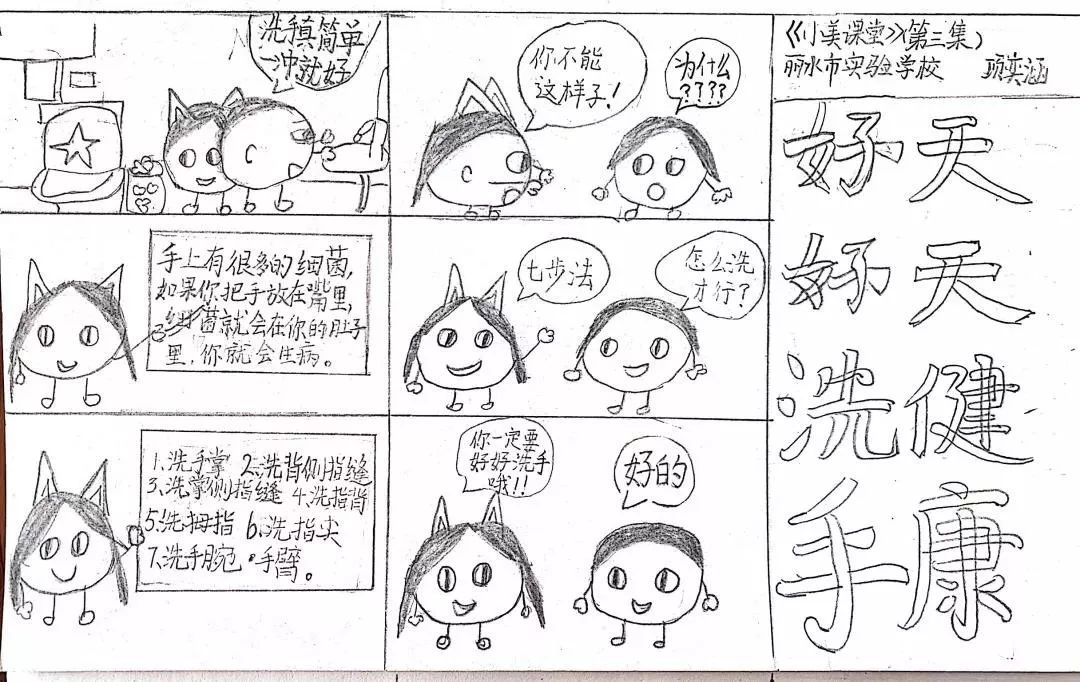 洗手真简单
一冲就好
你不能
这样子!
为什么
????
《小美课堂》(第三集)
丽水市实验学校 项奕涵
手上有很多的细菌,
如果你把手放在嘴里,
细菌就会在你的肚子
里,你就会生病。
七步法
怎么洗
才行?
1、洗手掌 2、洗背侧指缝
3、洗掌侧指缝 4、洗指背
5、洗拇指 6、洗指尖
7、洗手腕·手臂。
你一定要
好好洗手
哦!!
好的
好天
好天
洗健
手康